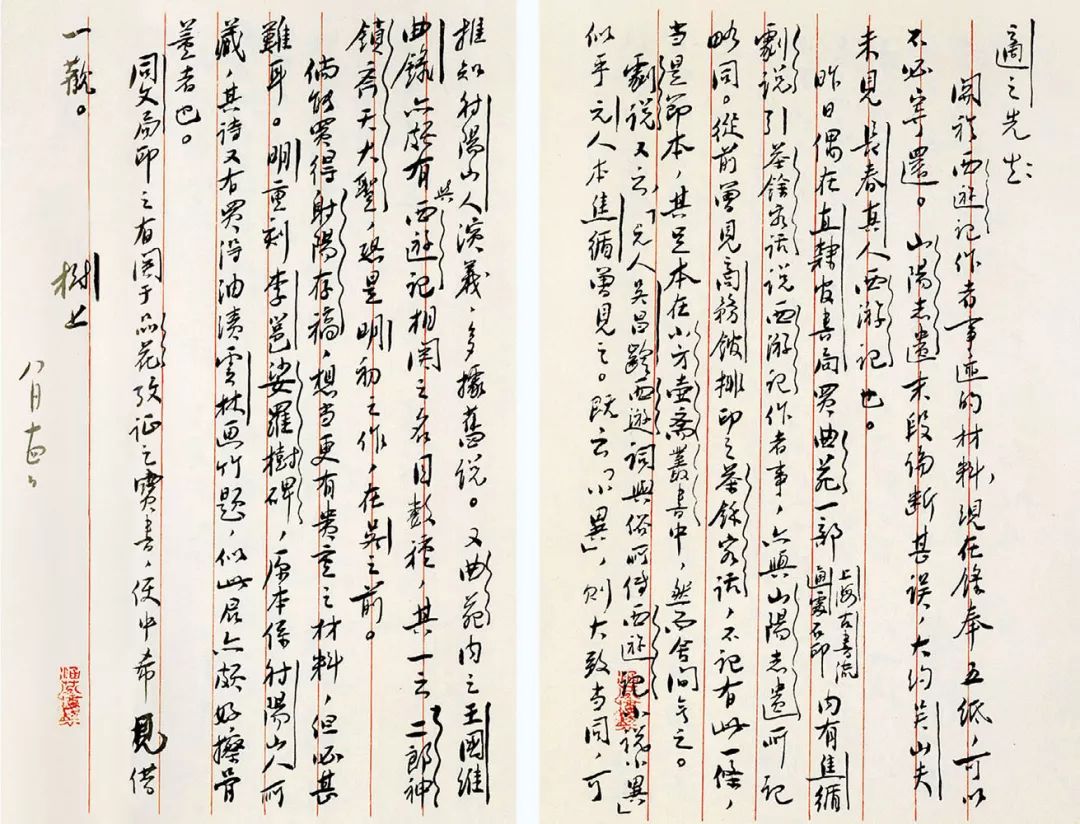 適之先生：
關於西遊記作者事迹的材料，現在錄奉五紙，可以
不必寄還。山陽志遺末段論斷甚誤，大約吳山夫
未見長春真人西游記也。
昨日偶在直隸官書局買曲苑一部上海古書流通處石印內有焦循
劇說引茶餘客話說西游記作者事，亦與山陽志遺所記
略同。從前曾見商務館排印之茶餘客話，不記有此一條，
當是節本，其足本在小方壺齋叢書中，然而舍間無之。
劇說又云，「元人吳昌齡西遊詞與俗所傳西遊記小說小異」
似乎元人本焦循曾見之。既云「小異」，則大致當同，可
推知射陽山人演義，多據舊說。又曲苑內之王國維
曲錄亦頗有與西遊記相關之名目數種，其一云二郎神
鎖齊天大聖，恐是明初之作，在吳之前。
倘能買得射陽存稿，想當更有貴重之材料，但必甚
難耳。明重刻李邕娑羅樹碑，原本係射陽山人所
藏，其詩又有買得油漬雲林画竹題，似此君亦頗好擦骨
董者也。
同文局印之有關于品花攷证之寶書，便中希見借
一觀。
樹上
八月十四日